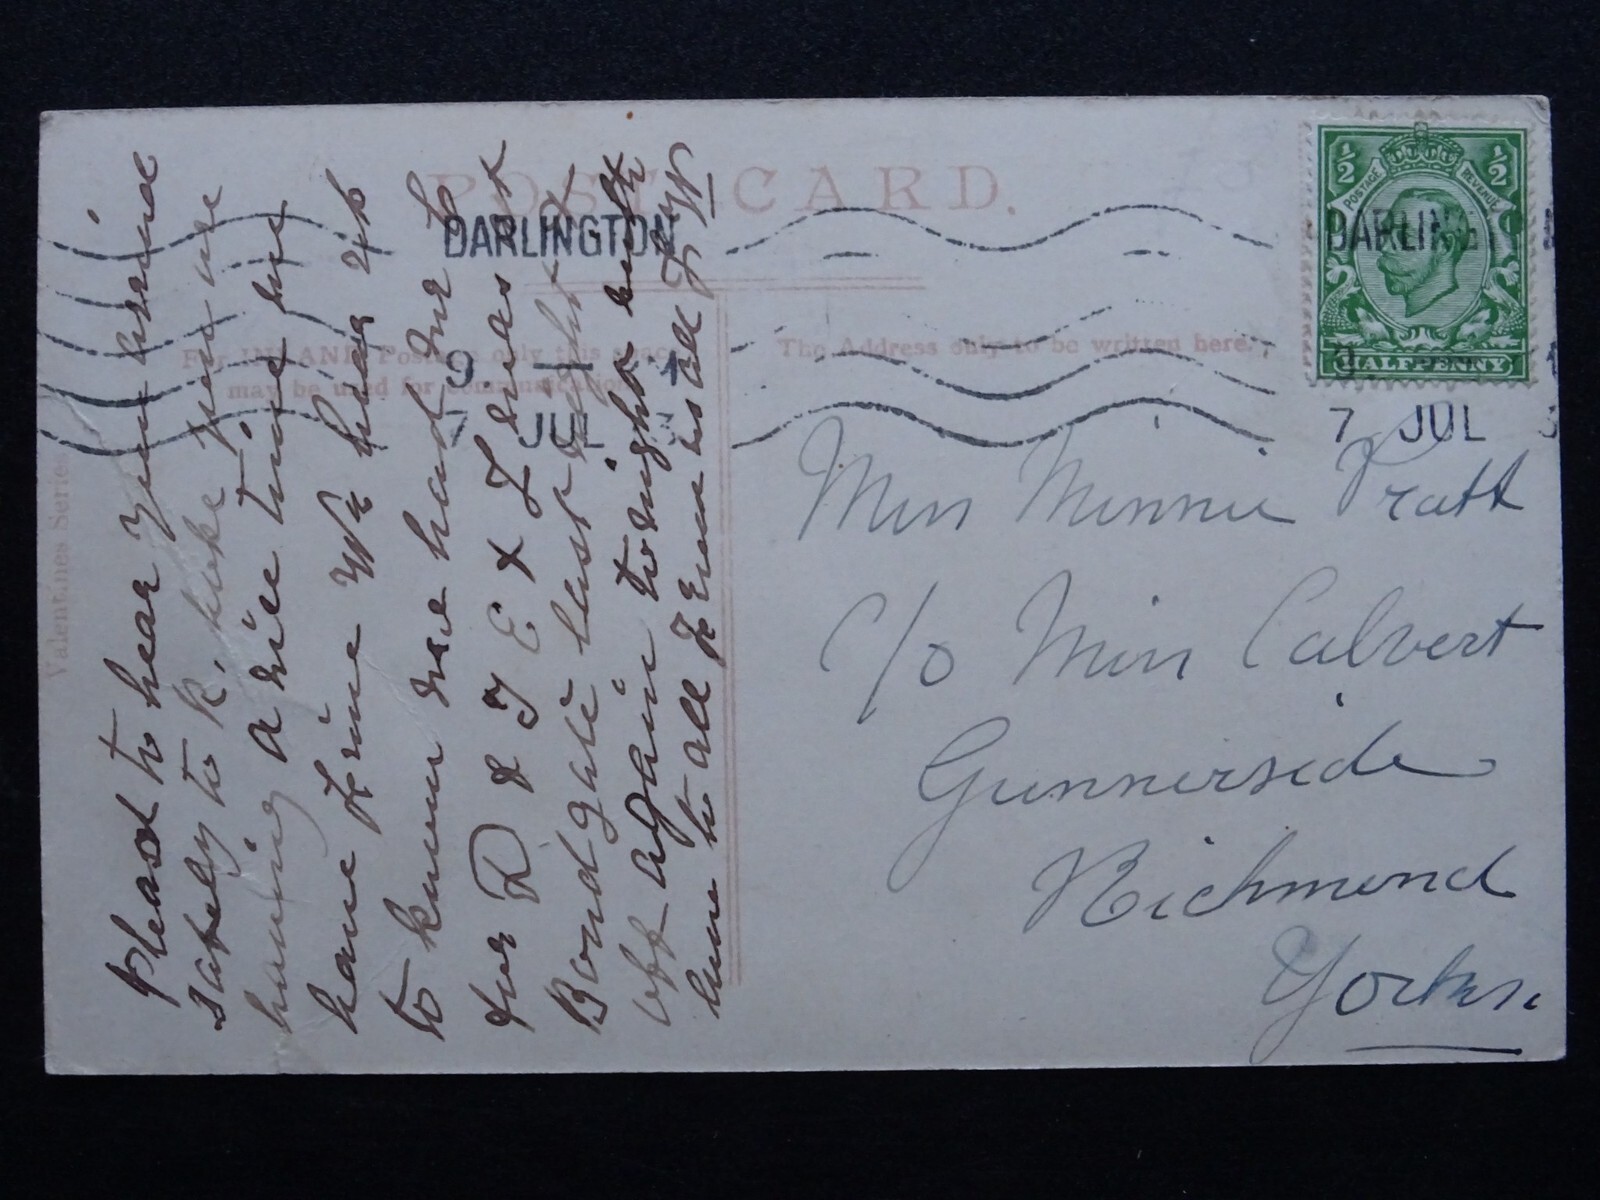 POST CARD.
For INLAND Postage only this space
may be used for communication.
The Address only to be written here.
Valentines Series
DARLINGTON
7 JUL
DARLING
7 JUL
1/2 1/2
POSTAGE REVENUE
HALFPENNY
Pleasd to hear you arrived
safely to R. hope you are
having a nice time we
have fine
to know we had
& T E & L
Bondgate last night &
off again tonight with
love to all from us all
Miss Minnie Pratt
c/o Miss Calvert
Gunnerside
Richmond
Yorks